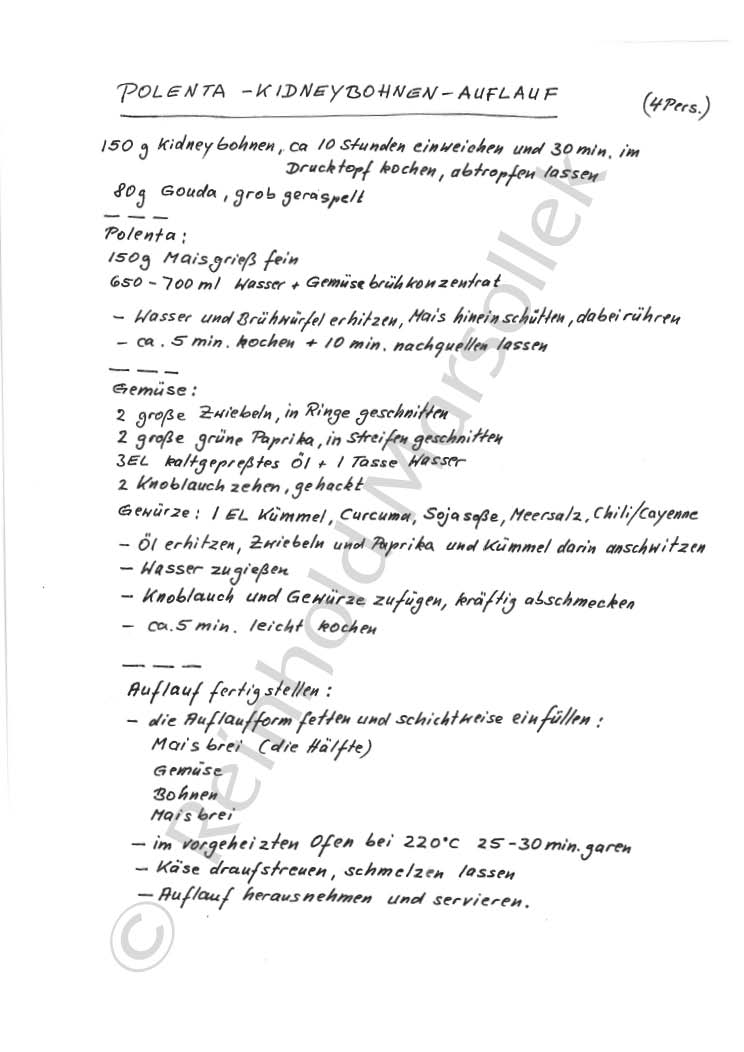 POLENTA - KIDNEYBOHNEN - AUFLAUF
(4 Pers.)
150 g Kidneybohnen, ca 10 Stunden einweichen und 30 min. im
Drucktopf kochen, abtropfen lassen
80g Gouda, grob geraspelt
---
Polenta:
150g Maisgrieß fein
650 - 700 ml Wasser + Gemüsebrühkonzentrat
- Wasser und Brühwürfel erhitzen, Mais hineinschütten, dabei rühren
- ca. 5 min. kochen + 10 min. nachquellen lassen
---
Gemüse:
2 große Zwiebeln, in Ringe geschnitten
2 große grüne Paprika, in Streifen geschnitten
3EL kaltgepreßtes Öl + 1 Tasse Wasser
2 Knoblauchzehen, gehackt
Gewürze: 1 EL Kümmel, Curcuma, Sojasoße, Meersalz, Chili/Cayenne
- Öl erhitzen, Zwiebeln und Paprika und Kümmel darin anschwitzen
- Wasser zugießen
- Knoblauch und Gewürze zufügen, kräftig abschmecken
- ca. 5 min. leicht kochen
---
Auflauf fertigstellen:
- die Auflaufform fetten und schichtweise einfüllen:
Maisbrei (die Hälfte)
Gemüse
Bohnen
Maisbrei
- im vorgeheizten Ofen bei 220°C 25-30 min. garen
- Käse draufstreuen, schmelzen lassen
- Auflauf herausnehmen und servieren.
© Reinhold Marsollek